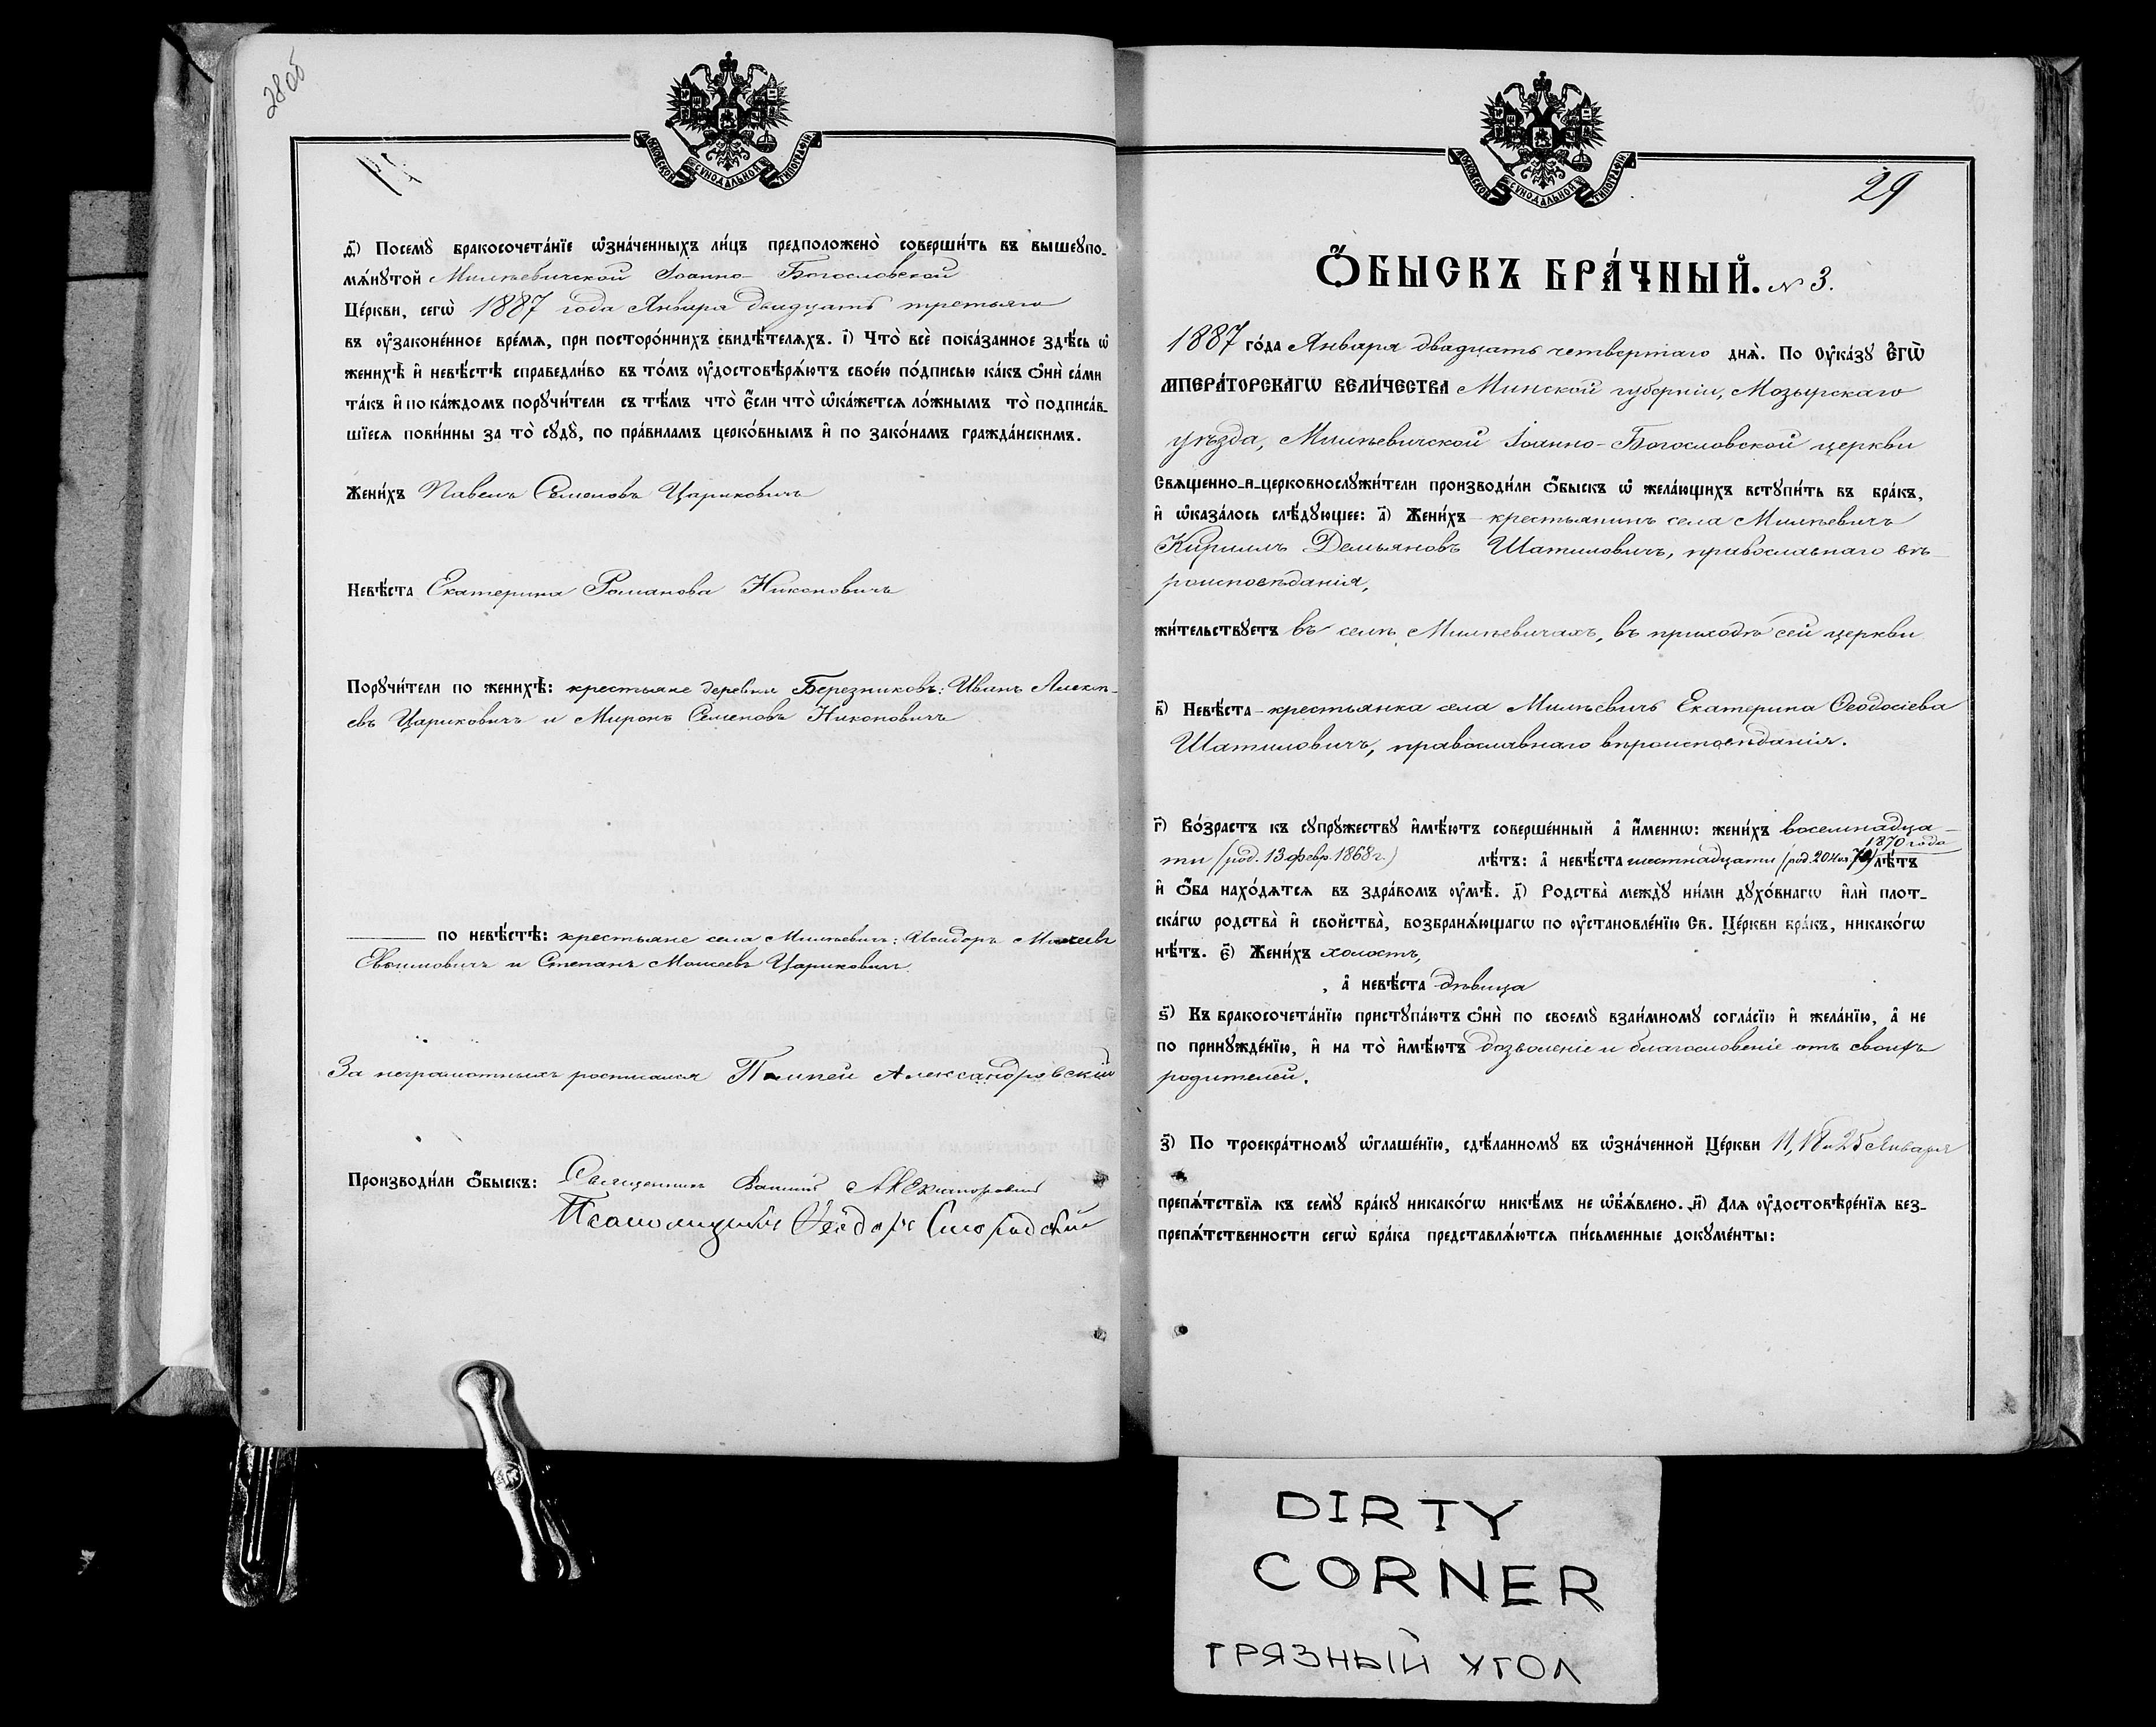 28об
МОСКОВСКОЙ СѴНОДАЛЬНОЙ ТИПОГРАФІИ
д҃) Посемꙋ̀ бракосочета́нїе ѡ҆зна́ченныхъ ли́цъ предположено̀ соверши́ть въ вышеꙋпо-
мѧ́нꙋтой Милѣвичской Іоанно-Богословской
Це́ркви, сегѡ̀ 1887 года Января двадцать третьяго
въ ᲂу҆зако́ненное вре́мѧ, при посторо́ннихъ свидѣ́телѧхъ. і҃) Что̀ всѐ пока́занное здѣ́сь ѡ҆
женихѣ̀ и҆ невѣ́стѣ справедли́во въ то́мъ ᲂу҆достовѣрѧ́ютъ свое́ю по́дписью ка́къ ѻ҆нѝ са́ми
та́къ и҆ по ка́ждомъ порꙋчи́тели съ тѣ́мъ что̀ є҆́сли что̀ ѡ҆ка́жетсѧ ло́жнымъ то̀ подписа́в-
шїесѧ пови́нны за то̀ сꙋдꙋ̀, по пра́виламъ церко́внымъ и҆ по зако́намъ гражда́нскимъ.
Жени́хъ Павелъ Семеновъ Царикович
Невѣ́ста Екатерина Романова Никонович
Порꙋчи́тели по женихѣ̀: крестьяне деревни Березниковъ: Иванъ Алексѣ-
евъ Царикович и Миронъ Семеновъ Никонович
по невѣ́стѣ: крестьяне села Милѣвичъ: Исидоръ
и Степанъ Моисеевъ Царикович.
За неграмотныхъ росписался Александровскій
Производи́ли ѻ҆́быскъ: Священникъ Александровскій
Псаломщикъ
МОСКОВСКОЙ СѴНОДАЛЬНОЙ ТИПОГРАФІИ
29
Ѻ҆́БЫСКЪ БРА́ЧНЫЙ. № 3.
1887 го́да Января двадцать четвертаго днѧ̀. По Оу҆ка́зꙋ Є҆гѡ̀
ИМПЕРА́ТОРСКАГѠ ВЕЛИ́ЧЕСТВА Минской губерніи, Мозырскаго
уѣзда, Милѣвичской Іоанно-Богословской церкви
Свѧщенно-и-церковнослꙋжи́тели производи́ли ѻ҆́быскъ ѡ҆ жела́ющихъ встꙋпи́ть въ бра́къ,
и҆ ѡ҆каза́лось слѣ́дꙋющее: а҃) Жени́хъ - крестьянинъ села Милѣвичъ
Кириллъ Демьяновъ Шатилович, православнаго вѣ-
роисповѣданія,
жи́тельствꙋетъ въ селѣ Милѣвичахъ, въ приходѣ сей церкви
в҃) Невѣ́ста - крестьянка села Милѣвичъ Екатерина Ѳеодосіева
Шатилович, православнаго вѣроисповѣданія.
г҃) Во́зрастъ къ сꙋпрꙋ́жествꙋ и҆мѣ́ютъ соверше́нный а҆ и҆́меннѡ: жени́хъ восемнадца-
1870 года
ти (род. 13 февр. 1868 г.) лѣ́тъ: а҆ невѣ́ста шестнадцати (род. 20 лѣ́тъ
и҆ ѻ҆́ба нахо́дѧтсѧ въ здра́вомъ ᲂу҆мѣ̀. д҃) Родства̀ междꙋ̀ ни́ми дꙋхо́внагѡ и҆лѝ плот-
ска́гѡ родства̀ и҆ сво́йства̀, возбранѧ́ющагѡ по ᲂу҆становле́нїю Св. Це́ркви бра́къ, никако́гѡ
нѣ́тъ. є҃) Жени́хъ холостъ,
, а҆ невѣ́ста дѣвица
ѕ҃) Къ бракосочета́нїю пристꙋпа́ютъ ѻ҆нѝ по своемꙋ̀ взаи́мномꙋ согла́сїю и҆ жела́нїю, а҆ не
по принꙋжде́нїю, и҆ на то̀ и҆мѣ́ютъ дозволеніе и благословеніе отъ своихъ
родителей.
з҃) По троекра́тномꙋ ѡ҆глаше́нїю, сдѣ́ланномꙋ въ ѡ҆зна́ченной Це́ркви 11, 18 и 25 Января
препѧ́тствїѧ къ семꙋ̀ бра́кꙋ никако́гѡ никѣ́мъ не ѡ҆б̾ѧ́влено. и҃) Длѧ ᲂу҆достовѣре́нїѧ без-
препѧ́тственности сегѡ̀ бра́ка представлѧ́ютсѧ пи́сьменные докꙋме́нты:
DIRTY
CORNER
ГРЯЗНЫЙ УГОЛ